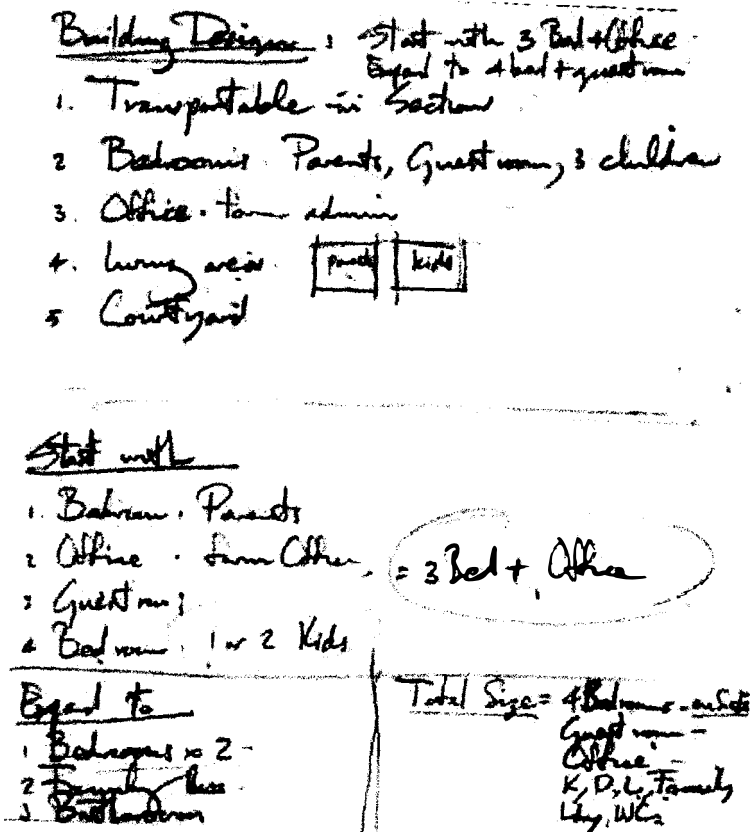 Building Design : Start with 3 Bed + Office
Expand to 4 bed + guest room
1. Transportable in Sections
2 Bedrooms Parents, Guest room, 3 children
3. Office - farm admin
4. Living areas parents kids
5 Courtyard
Start with
1. Bedroom . Parents
2 Office . farm Office
3 Guest room
4 Bedroom . 1 or 2 Kids
= 3 Bed + Office
Expand to
1 Bedrooms x 2 -
2 Family
3 Bathroom
Total Size = 4 Bedrooms - ensuite
Guest room -
Office -
K, D, L, Family
Ldy, WCs